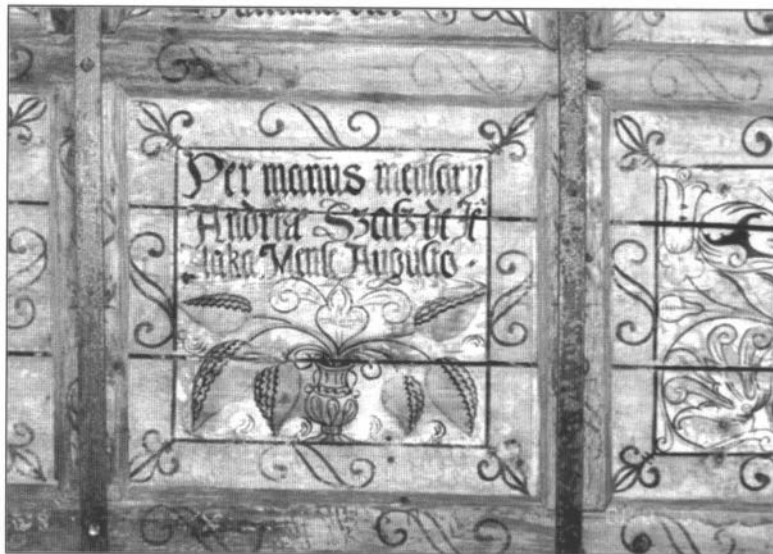 Per manus mensary
Andreæ Szasz de Je
Mense Augusto.